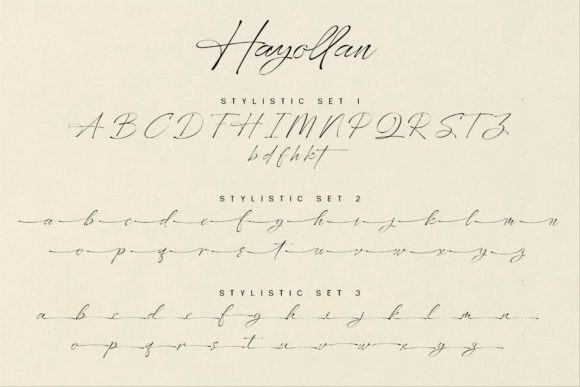 Hayollan
STYLISTIC SET 1
A B C D F H I M N P Q R S T Z
b d f h k t
STYLISTIC SET 2
a b c d e f g h i j k l m n
o p q r s t u v w x y z
STYLISTIC SET 3
a b c d e f g h i j k l m n
o p q r s t u v w x y z